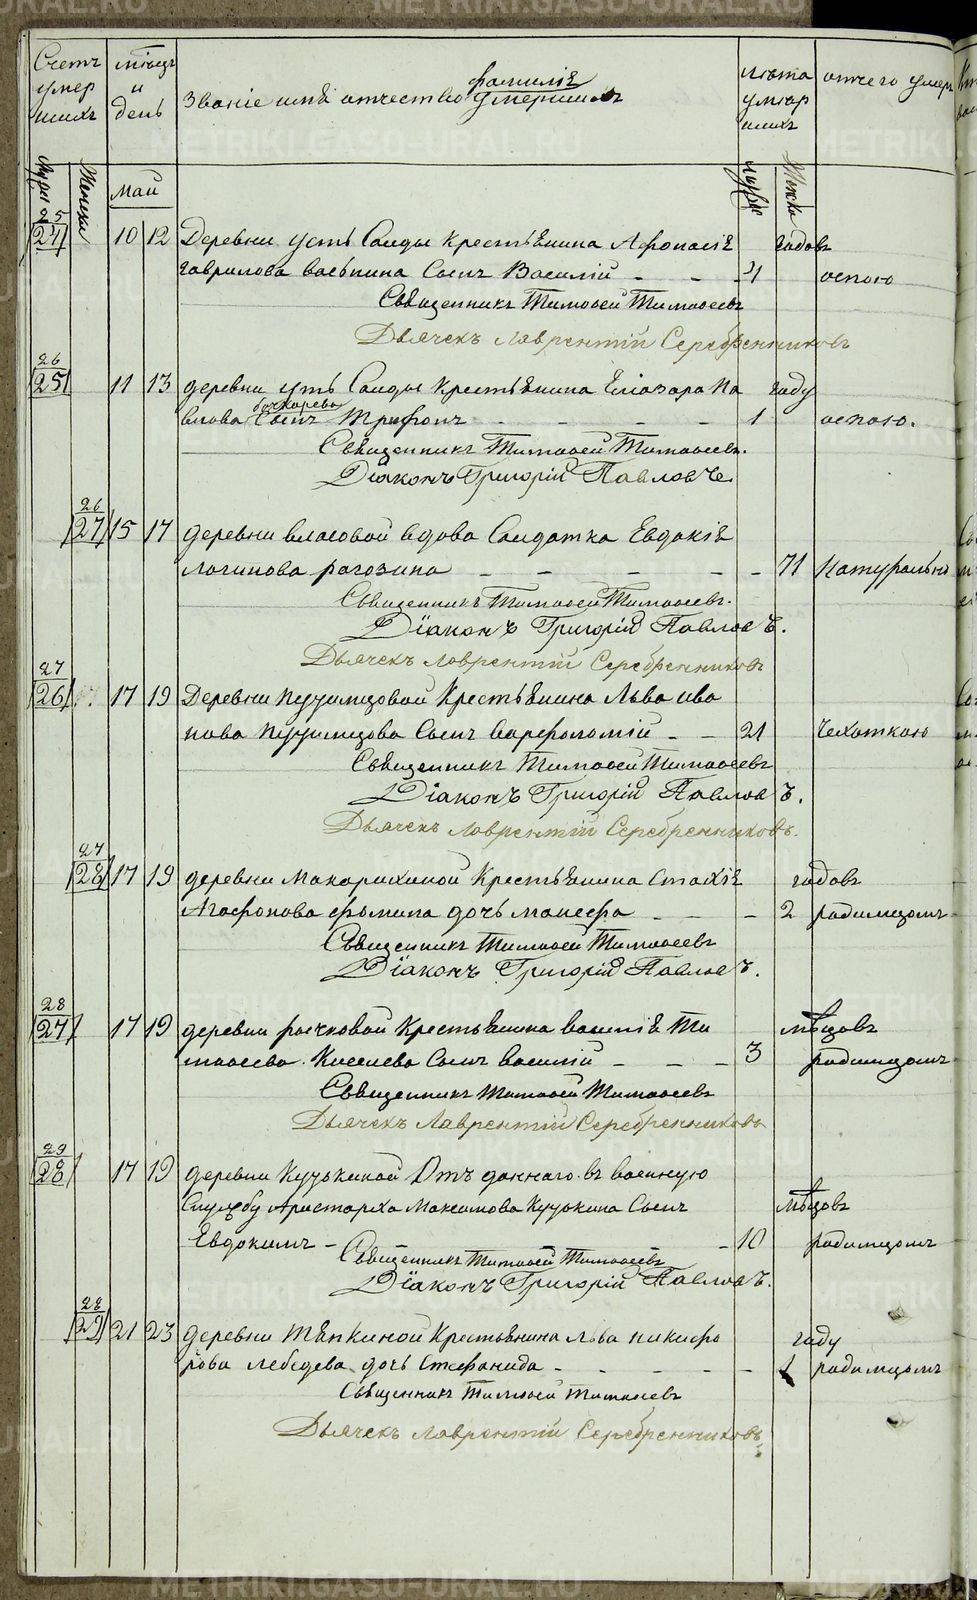 Счетъ умер шихъ
мѣсяцъ и день
Званіе имя отчество фамилія умершихъ
лѣта умер шихъ
отчего умер
Май
25
24 10 12 Деревни усть Саиды Крестьянина Афонасія годовъ
Гаврилова васькина Сынъ Василій - - - 4 оспою
Священникъ Тимофей Тимофеевъ
Дьячекъ Лаврентій Серебренниковъ
26
25 11 13 деревни усть Саиды Крестьянина Еліазара Па году
влова бочкарева Сынъ Трифонъ - - - - 1 оспою.
Священникъ Тимофей Тимофеевъ.
Діаконъ Григорій Павловъ.
26
27 15 17 деревни власовой вдова Салдатка Евдокія
логинова рагозина - - - - - 71 Натурально
Священникъ Тимофей Тимофеевъ.
Діаконъ Григорій Павловъ.
Дьячекъ Лаврентій Серебренниковъ
27
26 17 19 Деревни Крестьянина Льва ива
нова Сынъ варфоломій - - 21 Чехоткою
Священникъ Тимофей Тимофеевъ
Діаконъ Григорій Павловъ.
Дьячекъ Лаврентій Серебренниковъ.
27
28 17 19 деревни Макарихиной Крестьянина Стахія годовъ
Агафонова фомина дочь манефа - - - 2 радимцомъ
Священникъ Тимофей Тимофеевъ
Діаконъ Григорій Павловъ.
28
27 17 19 деревни рычковой Крестьянина василія Ти мѣсцовъ
мофеева Киселева Сынъ василій - - - 3 радимцомъ
Священникъ Тимофей Тимофеевъ
Дьячекъ Лаврентій Серебренниковъ
29
28 17 19 деревни Кузькиной Отъ даннаго въ военную
Службу Аристарха Максимова Кузькина Сынъ мѣсцовъ
Евдокимъ - - 10 радимцомъ
Священникъ Тимофей Тимофеевъ
Діаконъ Григорій Павловъ.
28
29 21 23 деревни Тяпкиной Крестьянина льва никифо году
рова лебедева дочь Стефанида - - - - 1 радимцомъ
Священникъ Тимофей Тимофеевъ
Дьячекъ Лаврентій Серебренниковъ
METRIKI.GASO-URAL.RU